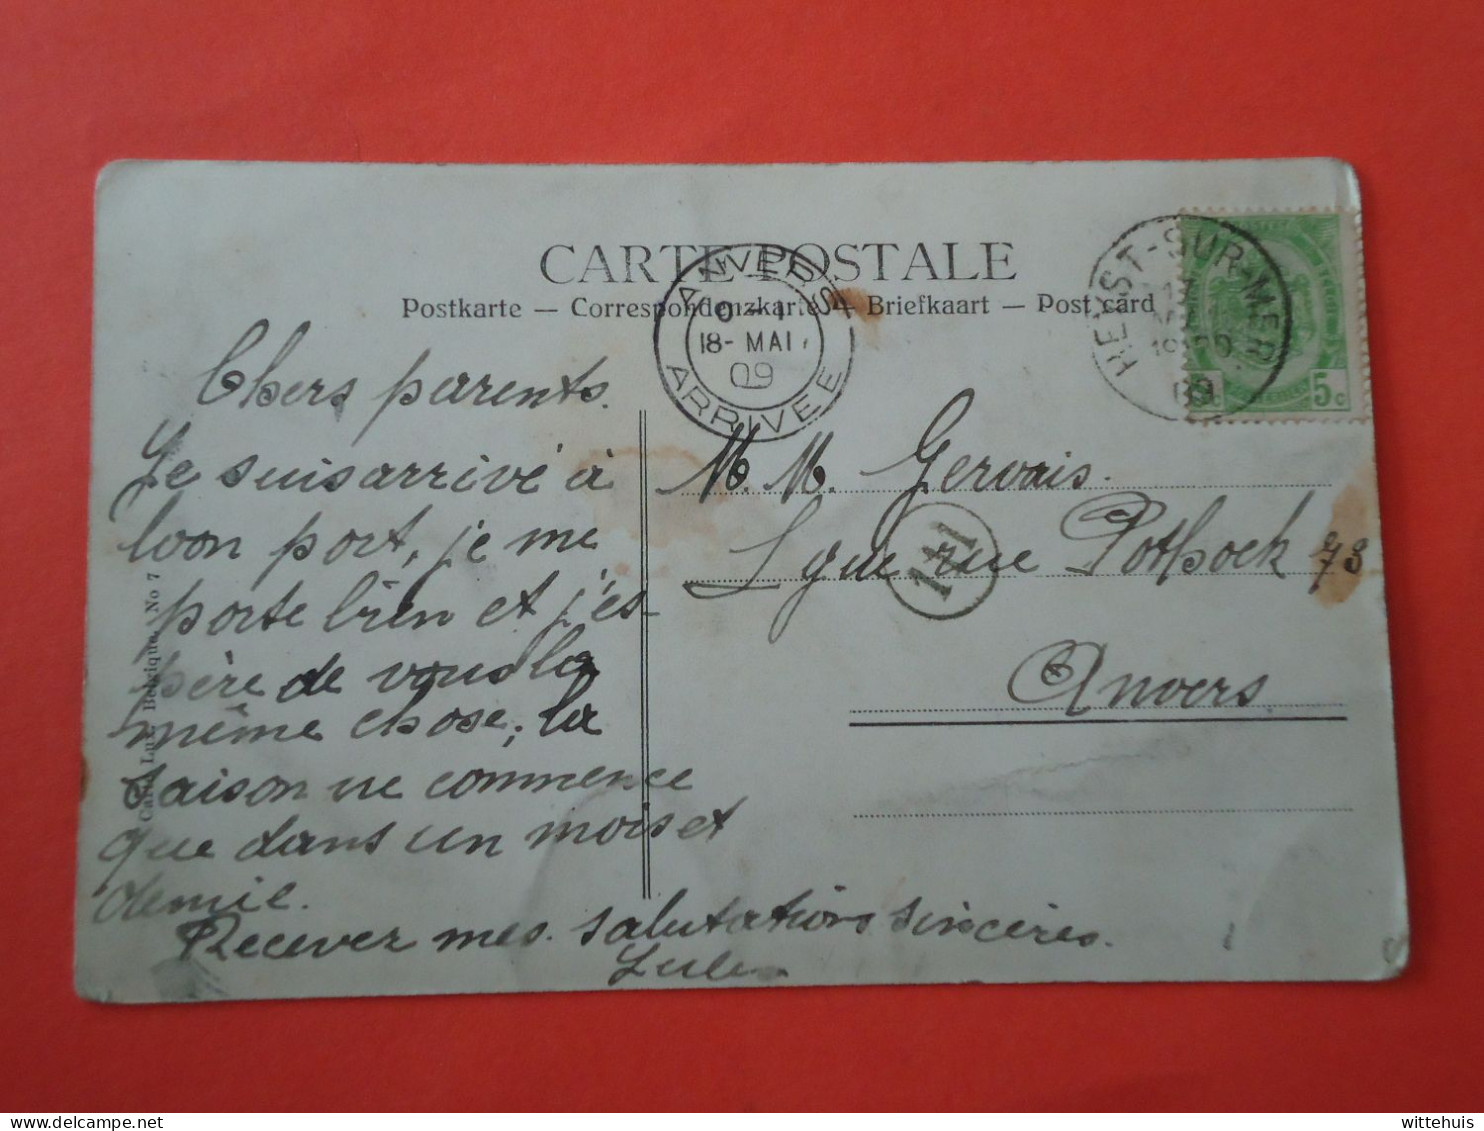 CARTE POSTALE
Postkarte — Correspondenzkarte — Briefkaart — Post card
ANVERS
0-1
18- MAI
09
ARRIVEE
HEYST-SUR-MER
09
5 c
Chers parents.
Je suis arrivé à
bon port, je me
porte bien et j'es-
père de vous la
même chose, la
saison ne commence
que dans un mois et
demie.
Recever mes salutations sincères.
M. M. Gervais.
rue Pothoek 73
Anvers
Belgique No 7
wittehuis